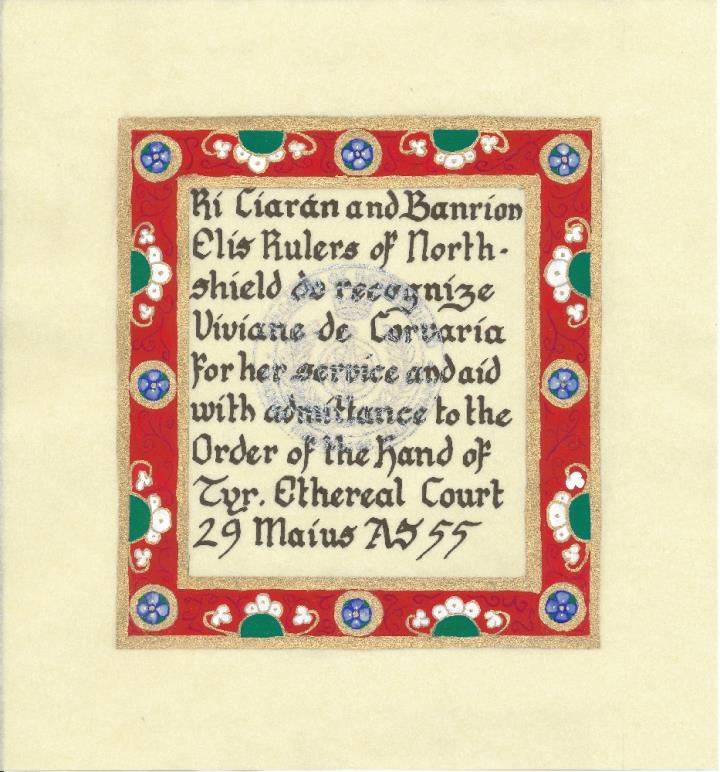 Ri Ciarán and Banrion
Elis Rulers of North-
shield do recognize
Viviane de Corvaria
for her service and aid
with admittance to the
Order of the Hand of
Tyr. Ethereal Court
29 Maius AS 55